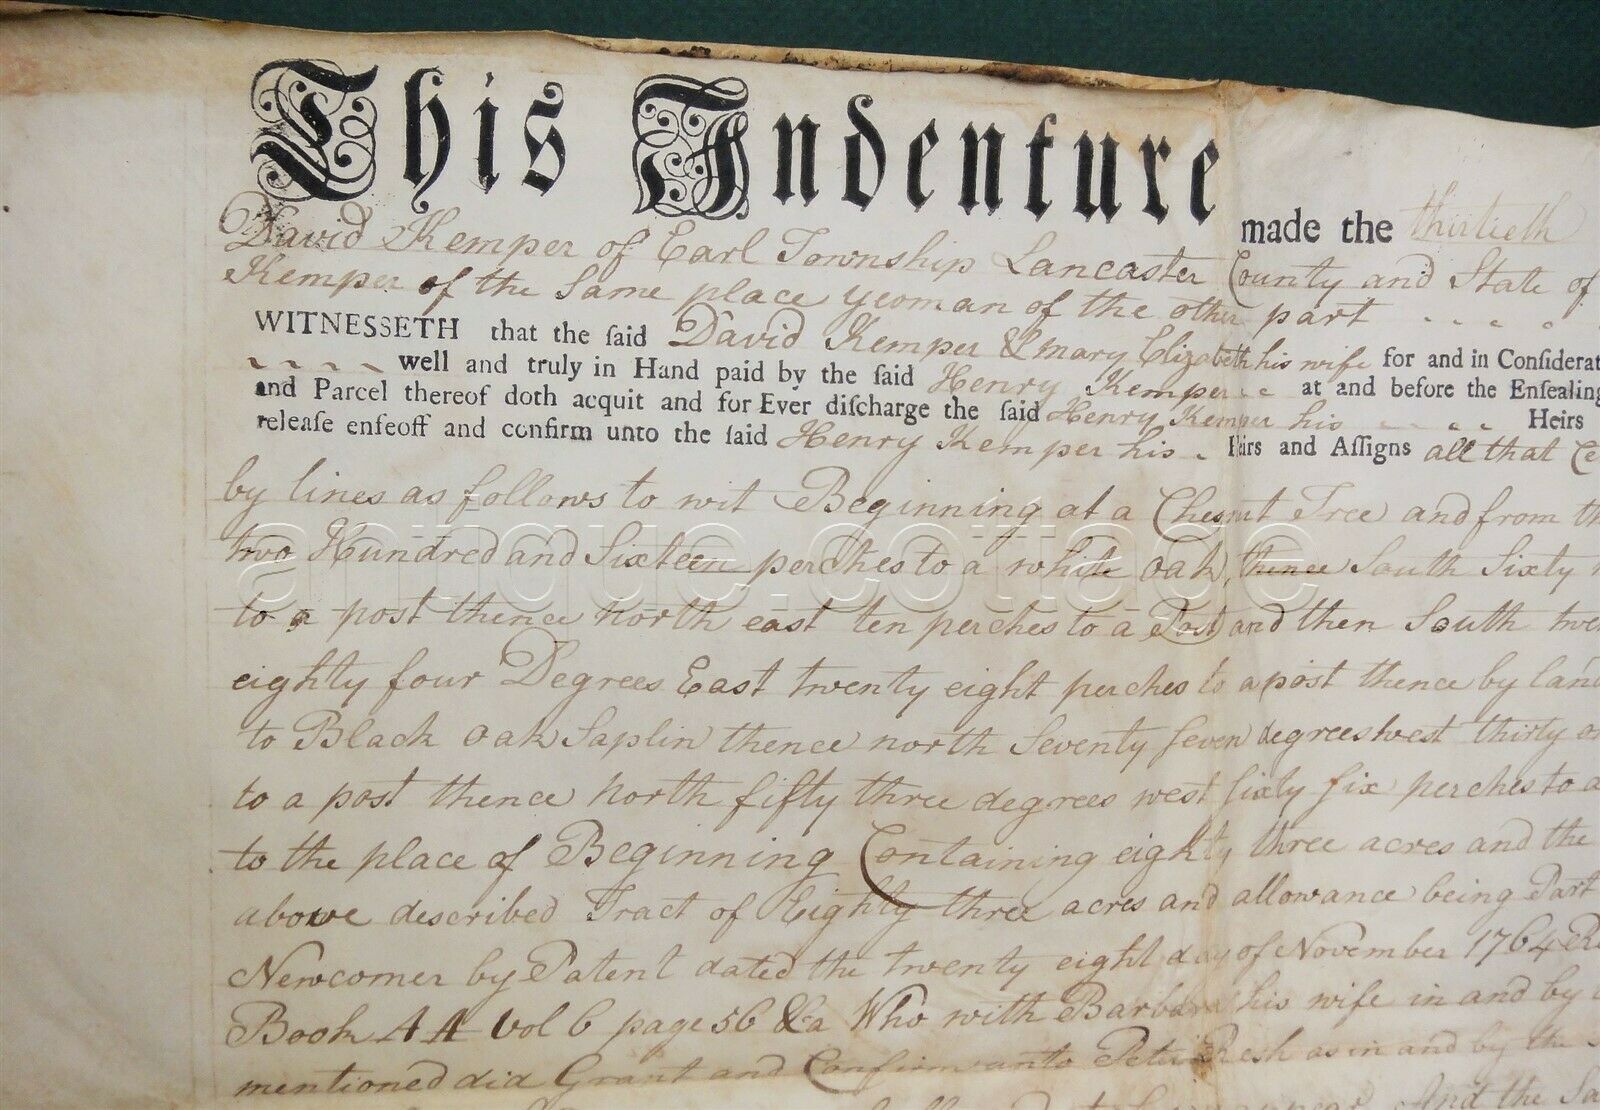 This Indenture made the thirtieth
David Kemper of Earl Township Lancaster County and State of
Kemper of the Same place yeoman of the other part
WITNESSETH that the ſaid David Kemper & Mary Elizabeth his wife for and in Conſiderat
well and truly in Hand paid by the ſaid Henry Kemper at and before the Enſealing
and Parcel thereof doth acquit and for Ever diſcharge the ſaid Henry Kemper his Heirs
releaſe enfeoff and confirm unto the ſaid Henry Kemper his Heirs and Aſſigns all that Ce
by lines as follows to wit Beginning at a Chesnut Tree and from th
two Hundred and Sixteen perches to a white oak, thence South Sixty
to a post thence north east ten perches to a Post and then South twe
eighty four Degrees East twenty eight perches to a post thence by land
to Black Oak Saplin thence north Seventy Seven degrees west thirty
to a post thence north fifty three degrees west Sixty Six perches to a
to the place of Beginning Containing eighty three acres and the
above described Tract of Eighty three acres and allowance being Part
Newcomer by Patent dated the twenty eight day of November 1764
Book AA Vol 6 page 56 &a Who with Barbara his wife in and by
mentioned did Grant and Confirm unto Peter Resh as in and by the
appear And the Sa
antique.cottage